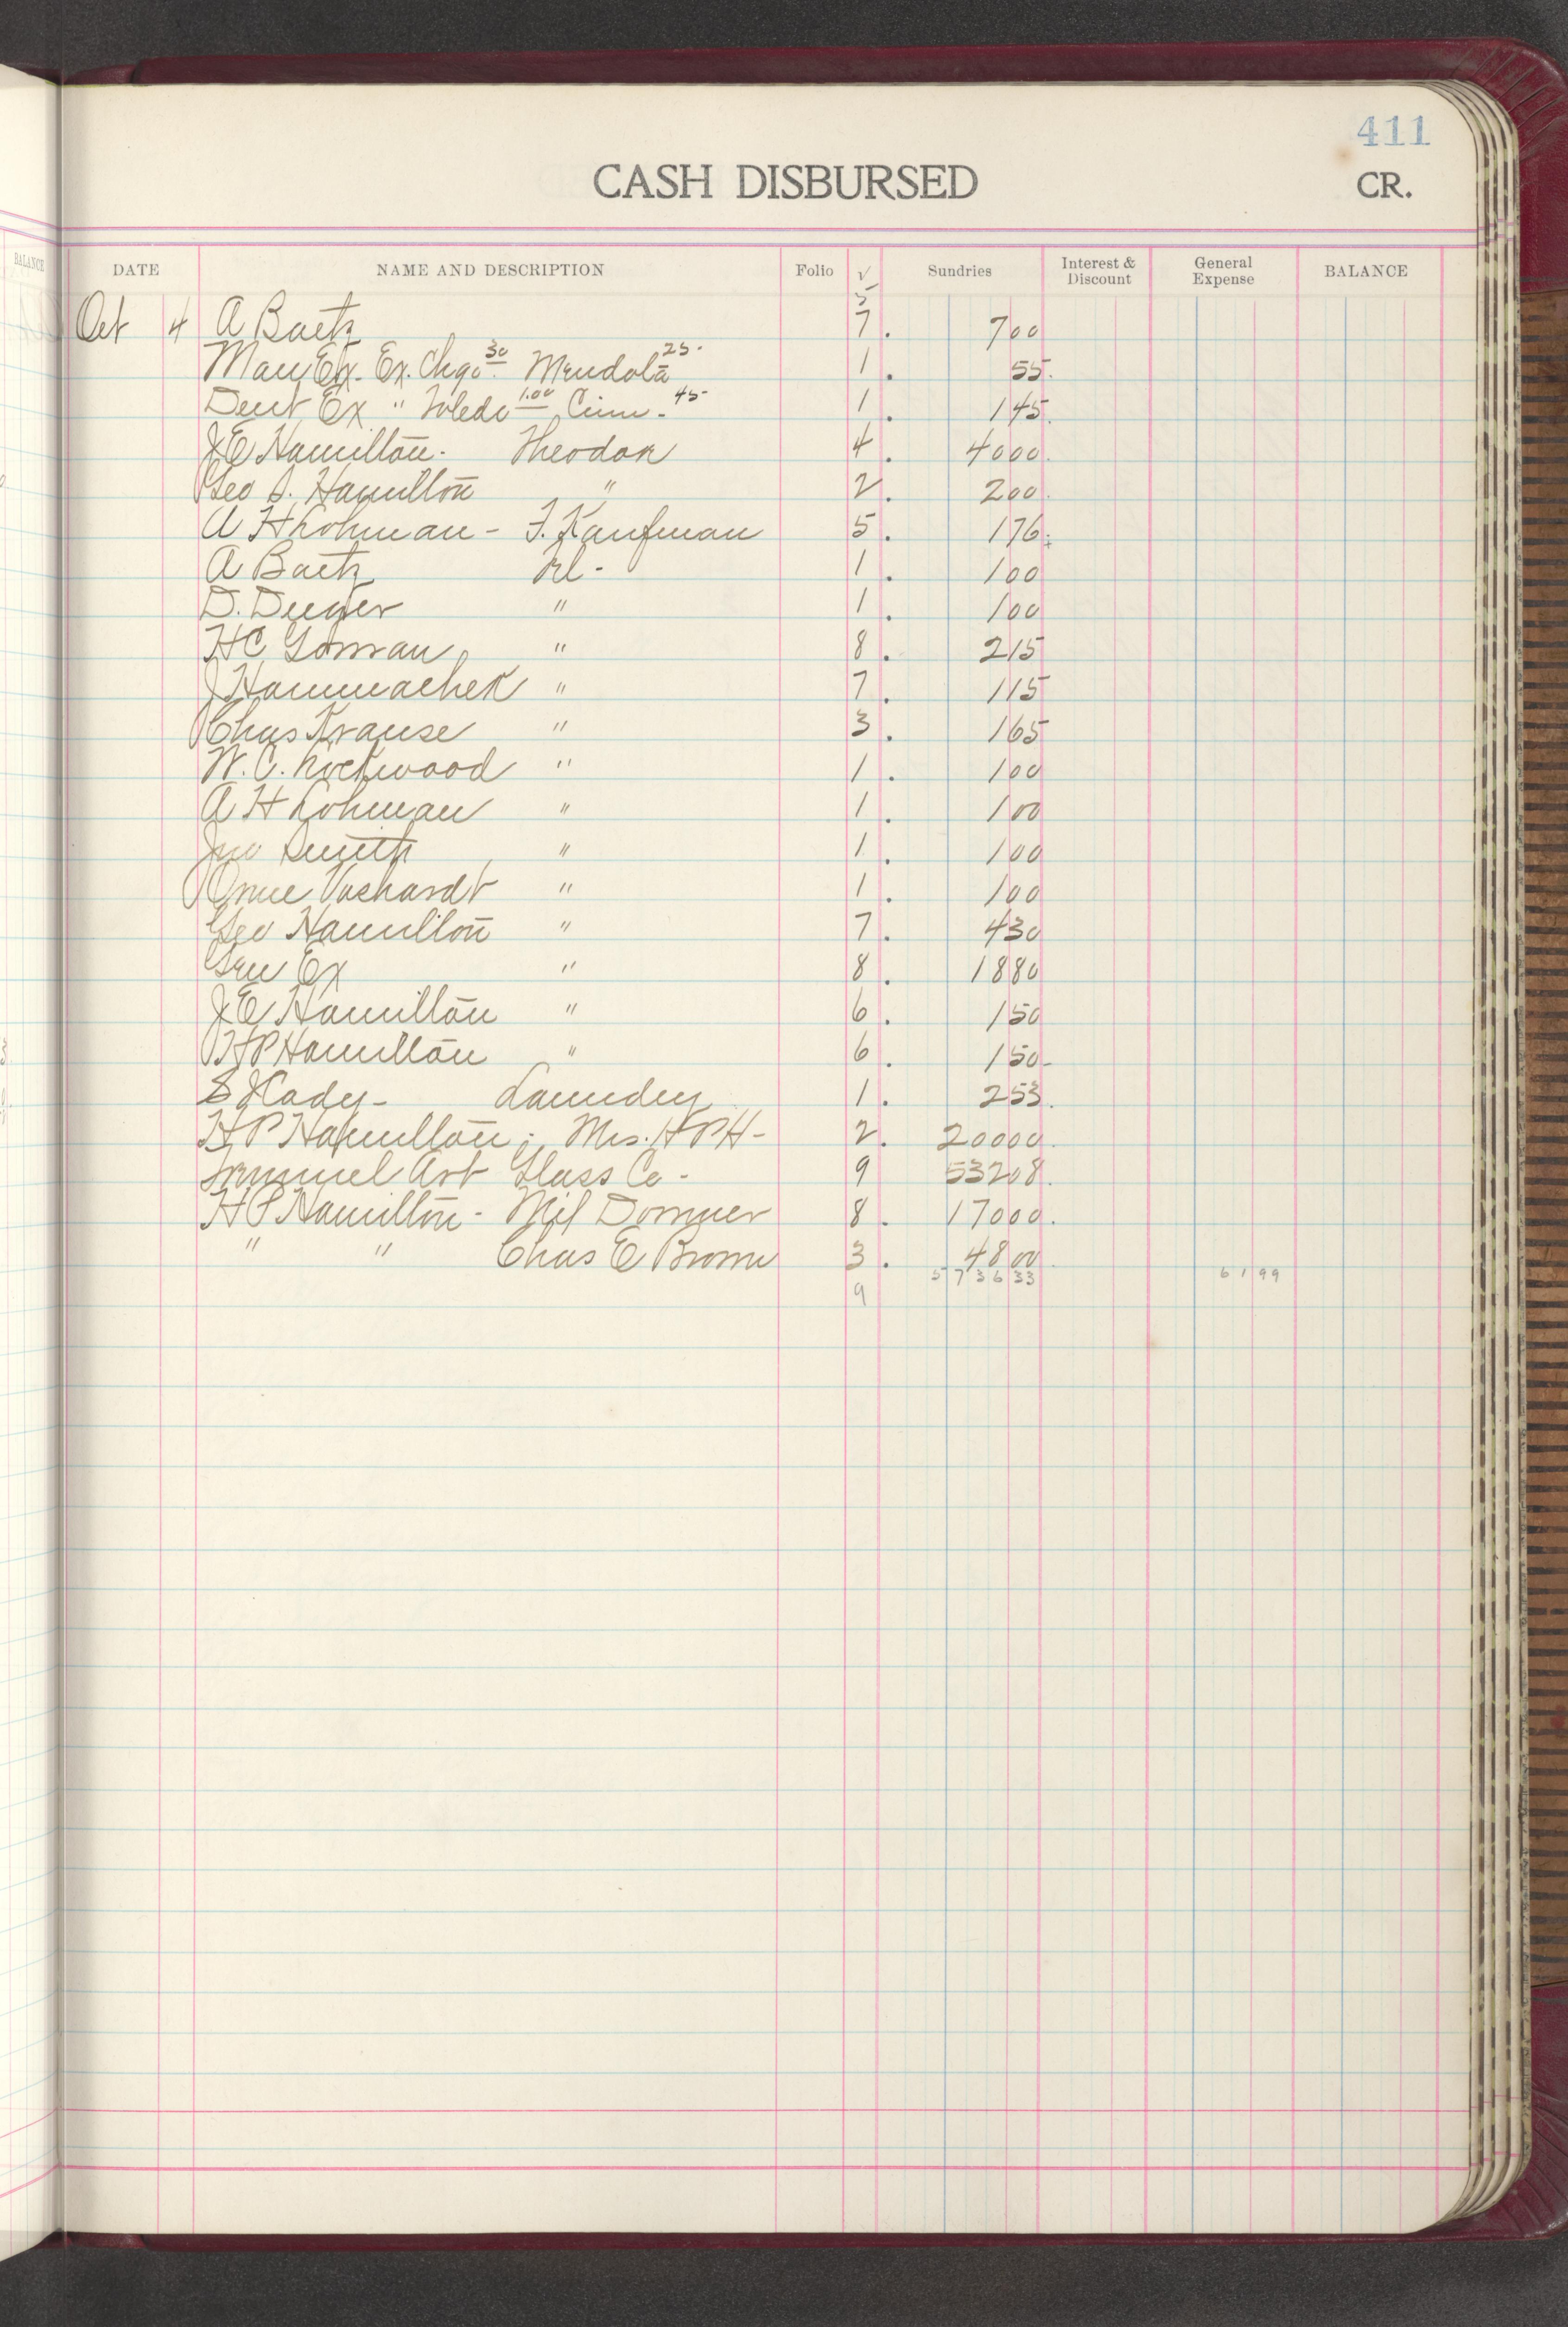 411
CASH DISBURSED CR.
BALANCE
DATE NAME AND DESCRIPTION Folio √ Sundries Interest & Discount General Expense BALANCE
5
Oct 4 A Baetz 7. 700
Man Ex. Ex. Chgo 30 Mendota 25- 1. 55.
Dent Ex " Toledo 1.00 Cinn- 45- 1. 145.
J E Hamilton. Theodor 4. 4000.
Geo S. Hamilton " 2. 200.
A H Lohman - F. Kaufman 5. 176.
A Baetz Rl- 1. 100
D. Deeger " 1. 100
H C Gorman " 8. 215
J Hammachek " 7. 115
Chas Krause " 3. 165
W. C. Rockwood " 1. 100
A H Lohman " 1. 100
Jno Smith " 1. 100
Vashardt " 1. 100
Geo Hamilton " 7. 430
Gen Ex " 8. 1880
J E Hamilton " 6. 150
H P Hamilton " 6. 150-
S J Cady- Laundry 1. 253.
H P Hamilton; Mrs. H P H- 2. 20000.
Art Glass Co- 9 53208.
H P Hamilton- Mil 8. 17000.
" " Chas E Brown 3. 4800
5736 33 61 99
9